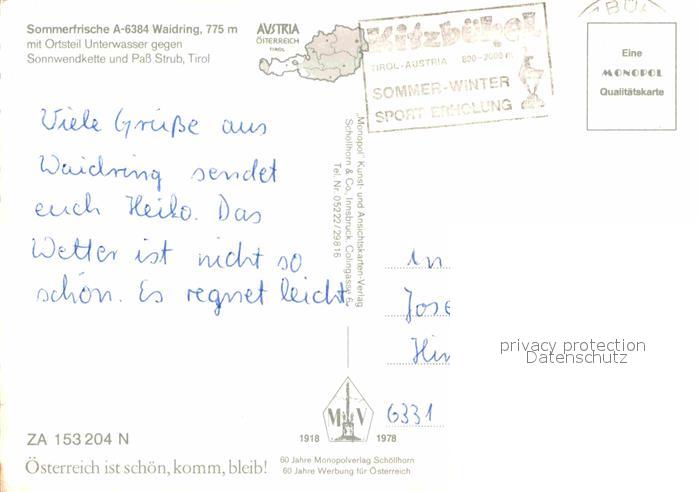 Sommerfrische A-6384 Waidring, 775 m
mit Ortsteil Unterwasser gegen
Sonnwendkette und Paß Strub, Tirol
AVSTRIA
ÖSTERREICH
TIROL
Kitzbühel
TIROL-AUSTRIA 800-2000 m
SOMMER-WINTER
SPORT ERHOLUNG
Eine
MONOPOL
Qualitätskarte
Viele Grüße aus
Waidring sendet
euch Heiko. Das
Wetter ist nicht so
schön. Es regnet leicht
„Monopol" Kunst- und Ansichtskarten-Verlag
Schöllhorn & Co., Innsbruck, Colingasse 6,
Tel. Nr. 05222/29816
An
Jose
Hin
6331
privacy protection
Datenschutz
M V
1918 1978
ZA 153 204 N
Österreich ist schön, komm, bleib!
60 Jahre Monopolverlag Schöllhorn
60 Jahre Werbung für Österreich